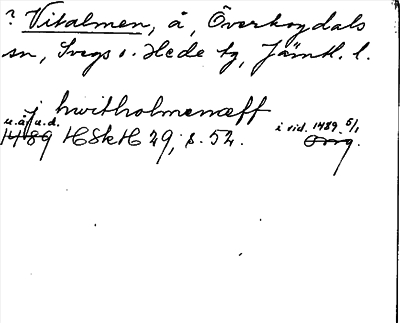 ? Vitalmen, å, Överhogdals
sn, Svegs o. Hede tg, Jämtl. l.
j hwitholmenæff
u.å. u.d. i vid. 1489 5/1
1489 HSkH 29, s. 52. Orig.